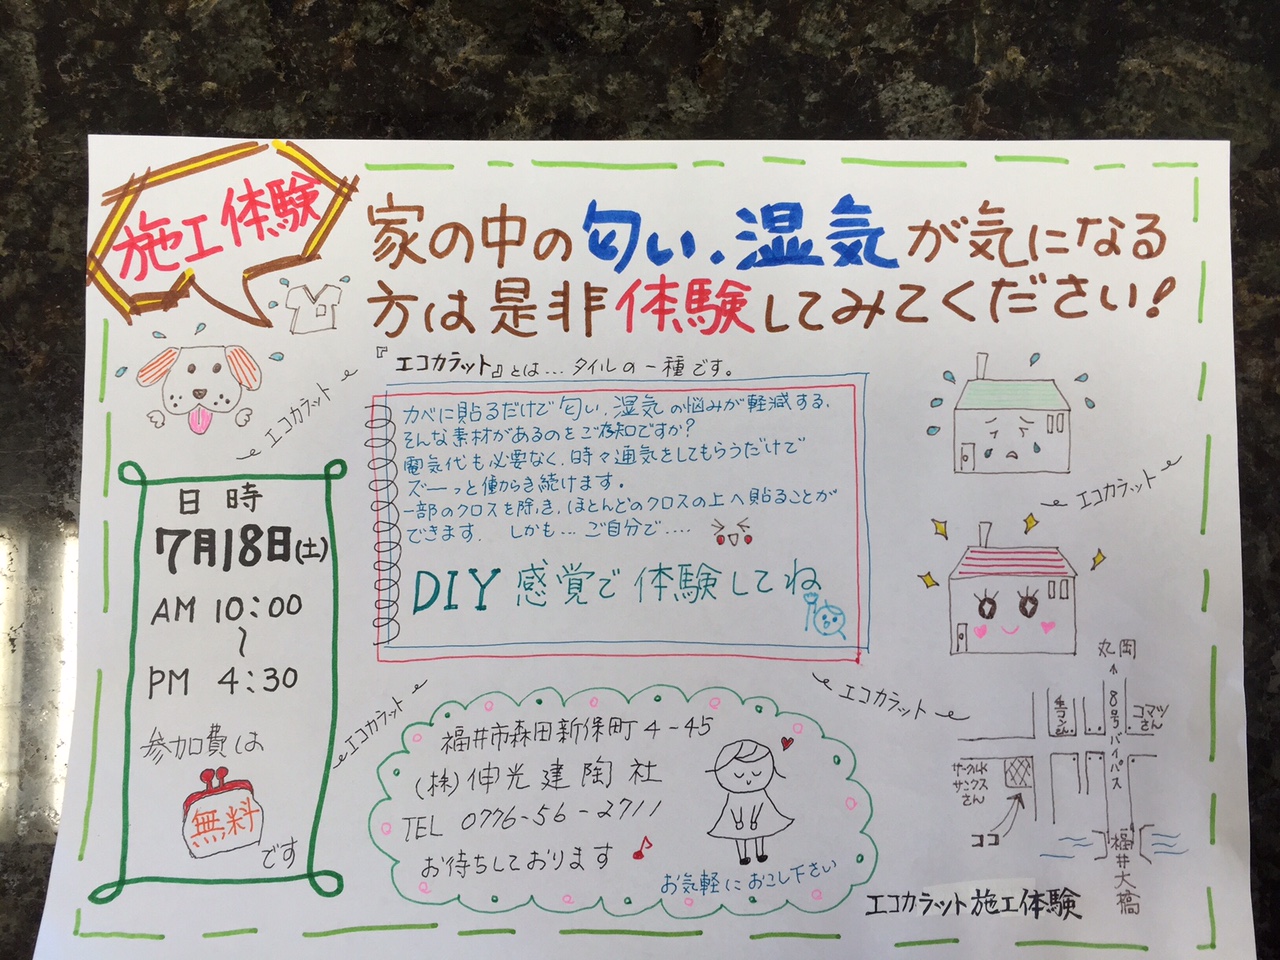 施工体験
家の中の匂い、湿気が気になる
方は是非体験してみてください!
『エコカラット』とは…タイルの一種です。
カベに貼るだけで匂い、湿気の悩みが軽減する、
そんな素材があるのをご存知ですか?
電気代も必要なく、時々通気をしてもらうだけで
ズーっと働らき続けます。
一部のクロスを除き、ほとんどのクロスの上へ貼ることが
できます。 しかも…ご自分で….
DIY 感覚で体験してね
エコカラット
日時
7月18日(土)
AM 10:00
〜
PM 4:30
参加費は
無料
です
エコカラット
エコカラット
エコカラット
福井市森田新保町4-45
(株)伸光建陶社
TEL 0776-56-2711
お待ちしております
お気軽におこし下さい
丸岡
8号バイパス
コマツ
さん
サークルK
サンクス
さん
ココ
福井大橋
エコカラット施工体験